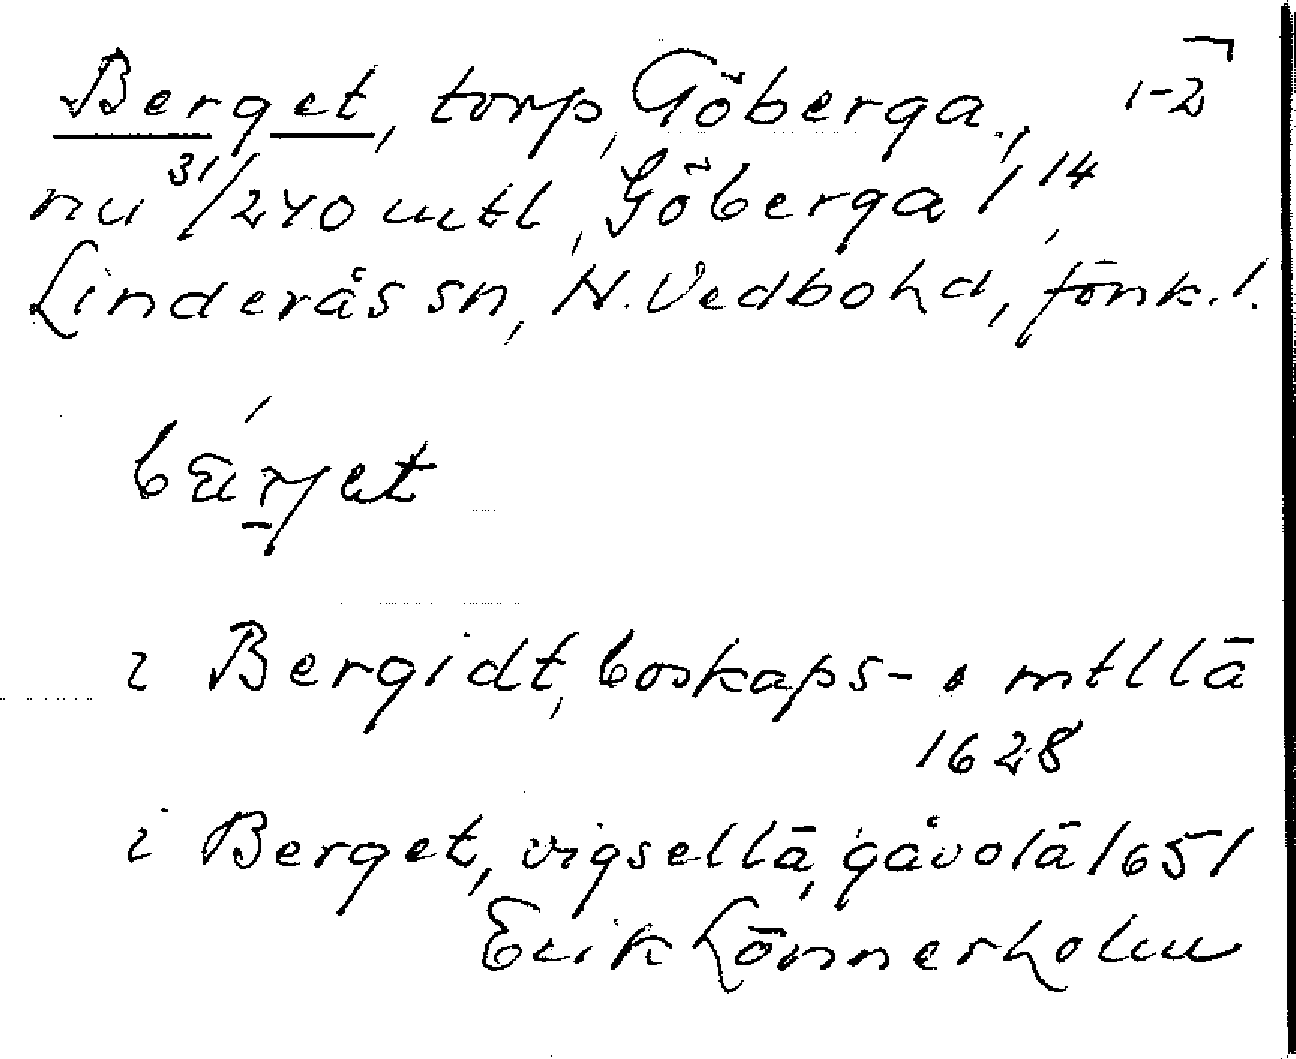 Berget, torp, Göberga, 1-2
nu 31/240 mtl, Göberga 1,14
Linderås sn, N. Vedbo hd, Jönk. l.
bärjet
i Bergidt, boskaps- o mtllä
1628
i Berget, vigsellä, gåvolä 1651
Erik Lönnerholm